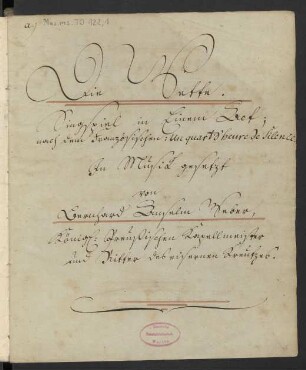 a) Mus. ms. TO 122,1
Die Wette.
Singspiel in Einem Act;
nach dem Französischen: Un quart d'heure de Silence
In Musik gesetzt
von
Bernhard Anselm Weber,
Königl: Preußischen Kapellmeister
und Ritter des eisernen Kreutzes.